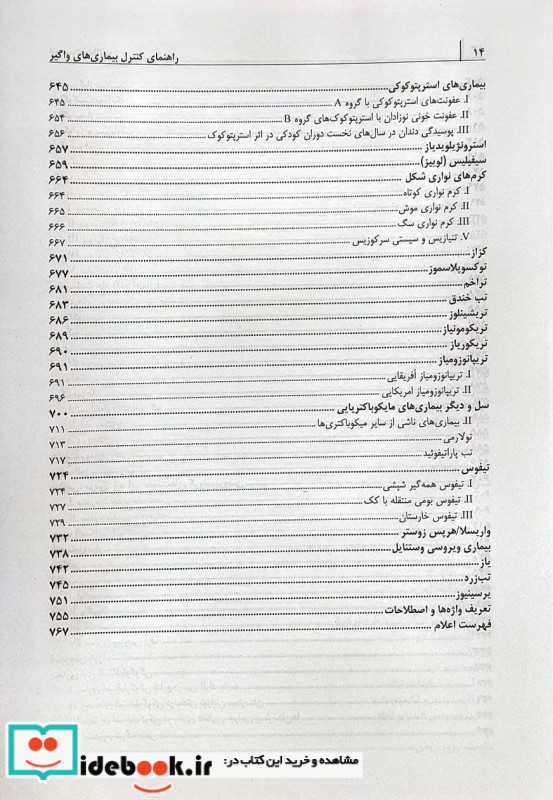 ۱۴ راهنمای کنترل بیماری‌های واگیر
بیماری‌های استرپتوکوکی ۶۴۵
I. عفونت‌های استرپتوکوکی با گروه A ۶۴۵
II. عفونت خونی نوزادان با استرپتوکوک‌های گروه B ۶۵۴
III. پوسیدگی دندان در سال‌های نخست دوران کودکی در اثر استرپتوکوک ۶۵۶
استرونژیلویدیاز ۶۵۷
سیفیلیس (لوییز) ۶۵۹
کرم‌های نواری شکل ۶۶۴
I. کرم نواری کوتاه ۶۶۴
II. کرم نواری موش ۶۶۵
III. کرم نواری سگ ۶۶۶
V. تنیازیس و سیستی سرکوزیس ۶۶۷
کزاز ۶۷۱
توکسوپلاسموز ۶۷۷
تراخم ۶۸۱
تب خندق ۶۸۳
تریشینلوز ۶۸۶
تریکومونیاز ۶۸۹
تریکوریاز ۶۹۰
تریپانوزومیاز ۶۹۱
I. تریپانوزومیاز آفریقایی ۶۹۱
II. تریپانوزومیاز امریکایی ۶۹۶
سل و دیگر بیماری‌های مایکوباکتریایی ۷۰۰
II. بیماری‌های ناشی از سایر میکوباکتری‌ها ۷۱۱
تولارمی ۷۱۳
تب پاراتیفوئید ۷۱۷
تیفوس ۷۲۴
I. تیفوس همه‌گیر شپشی ۷۲۴
II. تیفوس بومی منتقله با کک ۷۲۷
III. تیفوس خارستان ۷۲۹
واریسلا/هرپس زوستر ۷۳۲
بیماری ویروسی وستنایل ۷۳۸
یاز ۷۴۲
تب‌زرد ۷۴۵
یرسینیوز ۷۵۱
تعریف واژه‌ها و اصطلاحات ۷۵۵
فهرست اعلام ۷۶۷
مشاهده و خرید این کتاب در:
idebook.ir